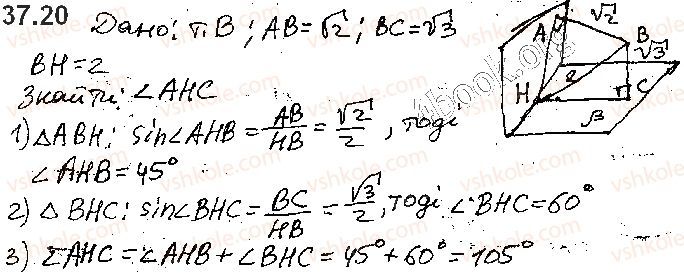 37.20 Дано: т. B; AB=√2; BC=√3
BH=2
Знайти: ∠AHC
1) △ABH: sin∠AHB = AB/HB = √2/2, тоді
∠AHB=45°
2) △BHC: sin∠BHC = BC/HB = √3/2, тоді ∠BHC=60°
3) ΣAHC = ∠AHB + ∠BHC = 45° + 60° = 105°
A √2 B √3 2 H C β